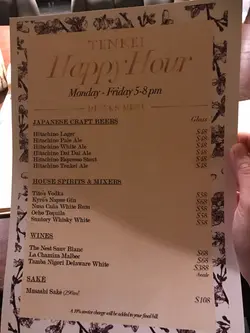 TENKEI
Happy Hour
Monday - Friday 5-8 pm
DRINKS MENU
JAPANESE CRAFT BEERS Glass
Hitachino Lager $48
Hitachino Pale Ale $48
Hitachino White Ale $48
Hitachino Dai Dai Ale $48
Hitachino Espresso Stout $48
Hitachino Tenkei Ale $48
HOUSE SPIRITS & MIXERS
Tito's Vodka
Kyro's Napue Gin
Nusa Caña White Rum
Ocho Tequila
Suntory Whisky White
WINES
The Ned Sauv Blanc $68
La Chamiza Malbec $68
Tamba Nigori Delaware White $388
bottle
SAKE
Masashi Sake (290ml) $108
A 10% service charge will be added to your final bill.